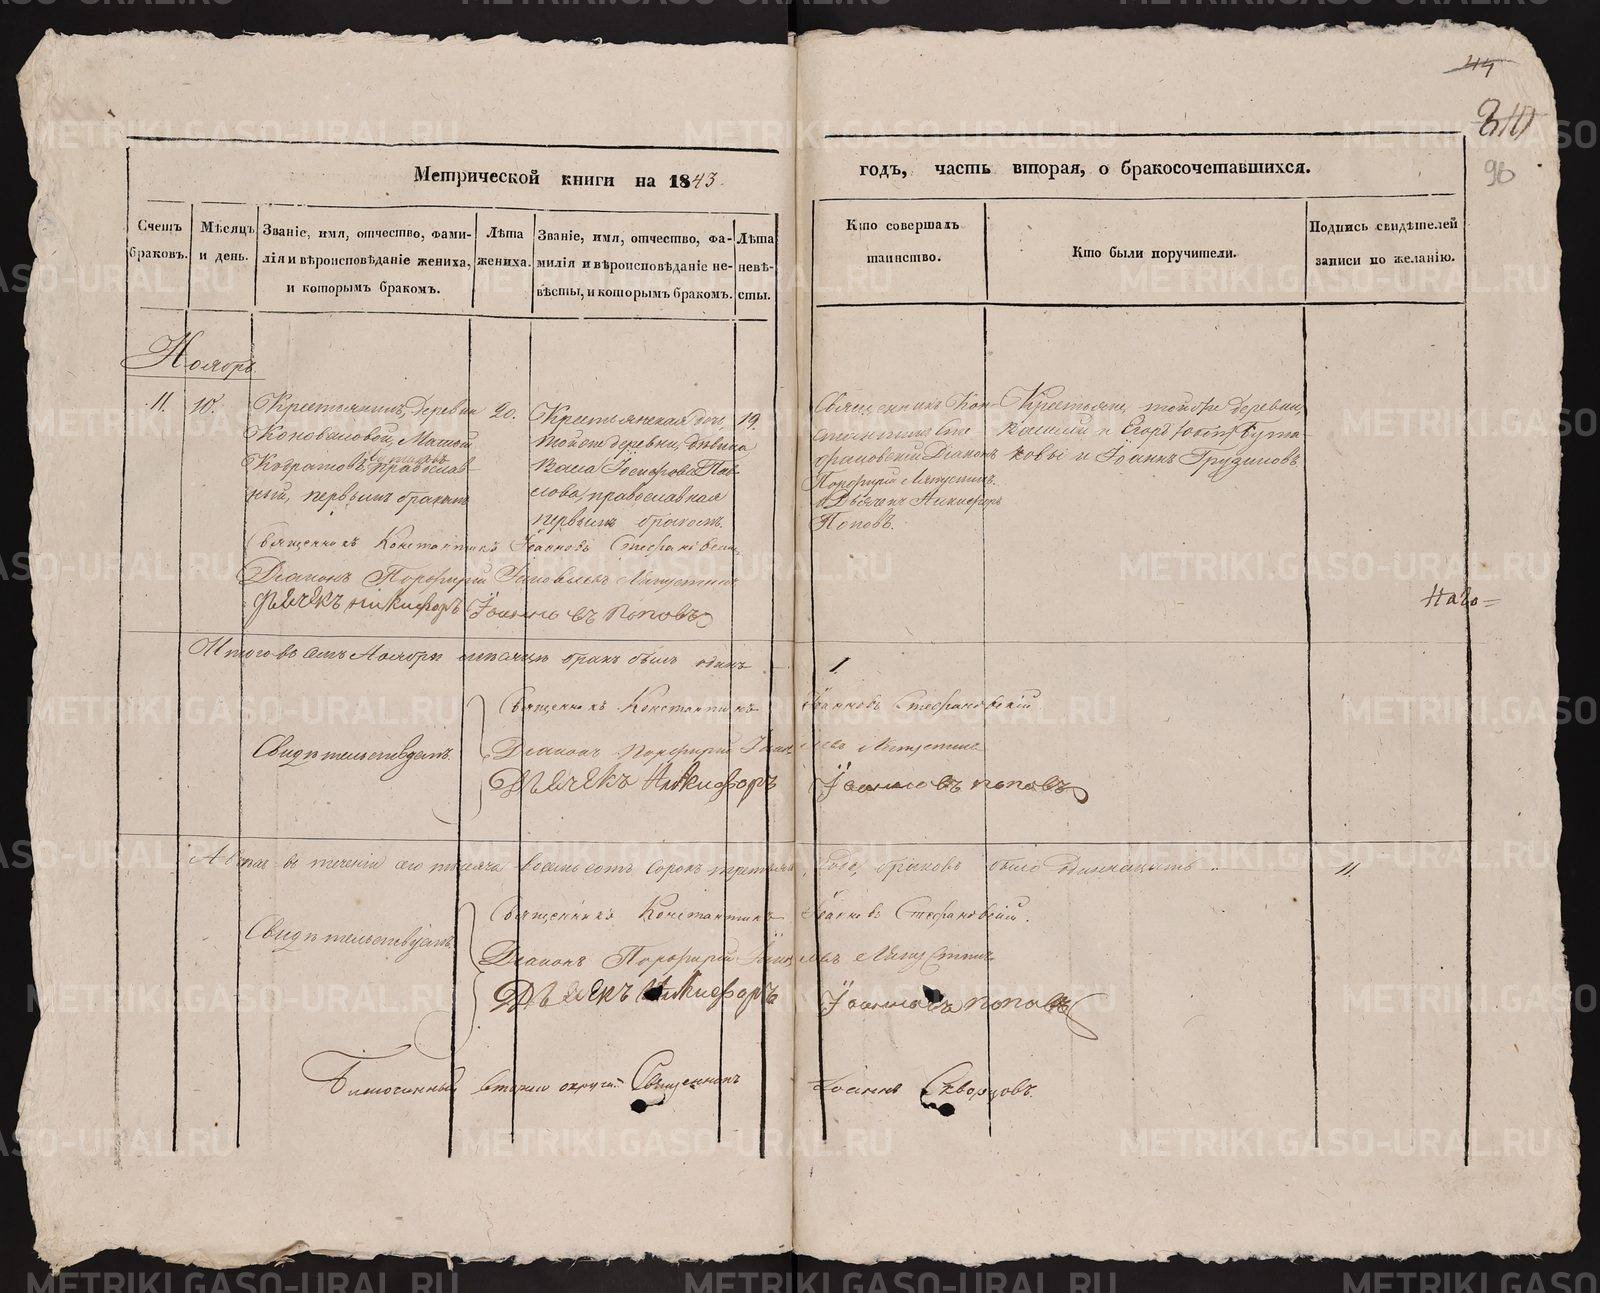 44
340
96
Метрической книги на 1843.
годъ, часть вторая, о бракосочетавшихся.
Счетъ браковъ.
Мѣсяцъ и день.
Званіе, имя, отчество, фами-
лія и вѣроисповѣданіе жениха,
и которымъ бракомъ.
Лѣта жениха.
Званіе, имя, отчество, фа-
милія и вѣроисповѣданіе не-
вѣсты, и которымъ бракомъ.
Лѣта невѣ-
сты.
Кто совершалъ
таинство.
Кто были поручители.
Подпись свидѣтелей
записи по желанію.
Ноябрь
11. 10.
Крестьянинъ, деревни
Коноваловой,
православ-
ный, первымъ бракомъ
20.
Крестьянская
тойже деревни, дѣвица
Іосифова
православная
первымъ бракомъ.
19.
Священникъ Кон-
стантинъ Сте-
фановскій Діаконъ
Порфирій
Дьячекъ Никифоръ
Поповъ.
Крестьяне, тойже деревни,
и Егоръ
и Іоаннъ Грузиновъ
Священникъ Константинъ Іоанновъ Стефановскій
Діаконъ Порфирій
Дьячекъ Никифоръ Іоанновъ Поповъ
Наго=
Итого въ семъ Ноябрѣ мѣсяцѣ бракъ былъ одинъ 1.
Свидѣтельствуемъ.
Священникъ Константинъ Іоанновъ Стефановскій.
Діаконъ Порфирій
Дьячекъ Никифоръ Іоанновъ Поповъ
А всѣхъ въ теченіи сего тысяча восемьсотъ сорокъ третьяго года, браковъ было одиннадцать 11.
Свидѣтельствуемъ.
Священникъ Константинъ Іоанновъ Стефановскій.
Діаконъ Порфирій
Дьячекъ Никифоръ Іоанновъ Поповъ
Благочинный втораго округа Священникъ Іоаннъ Скворцовъ.
METRIKI.GASO-URAL.RU